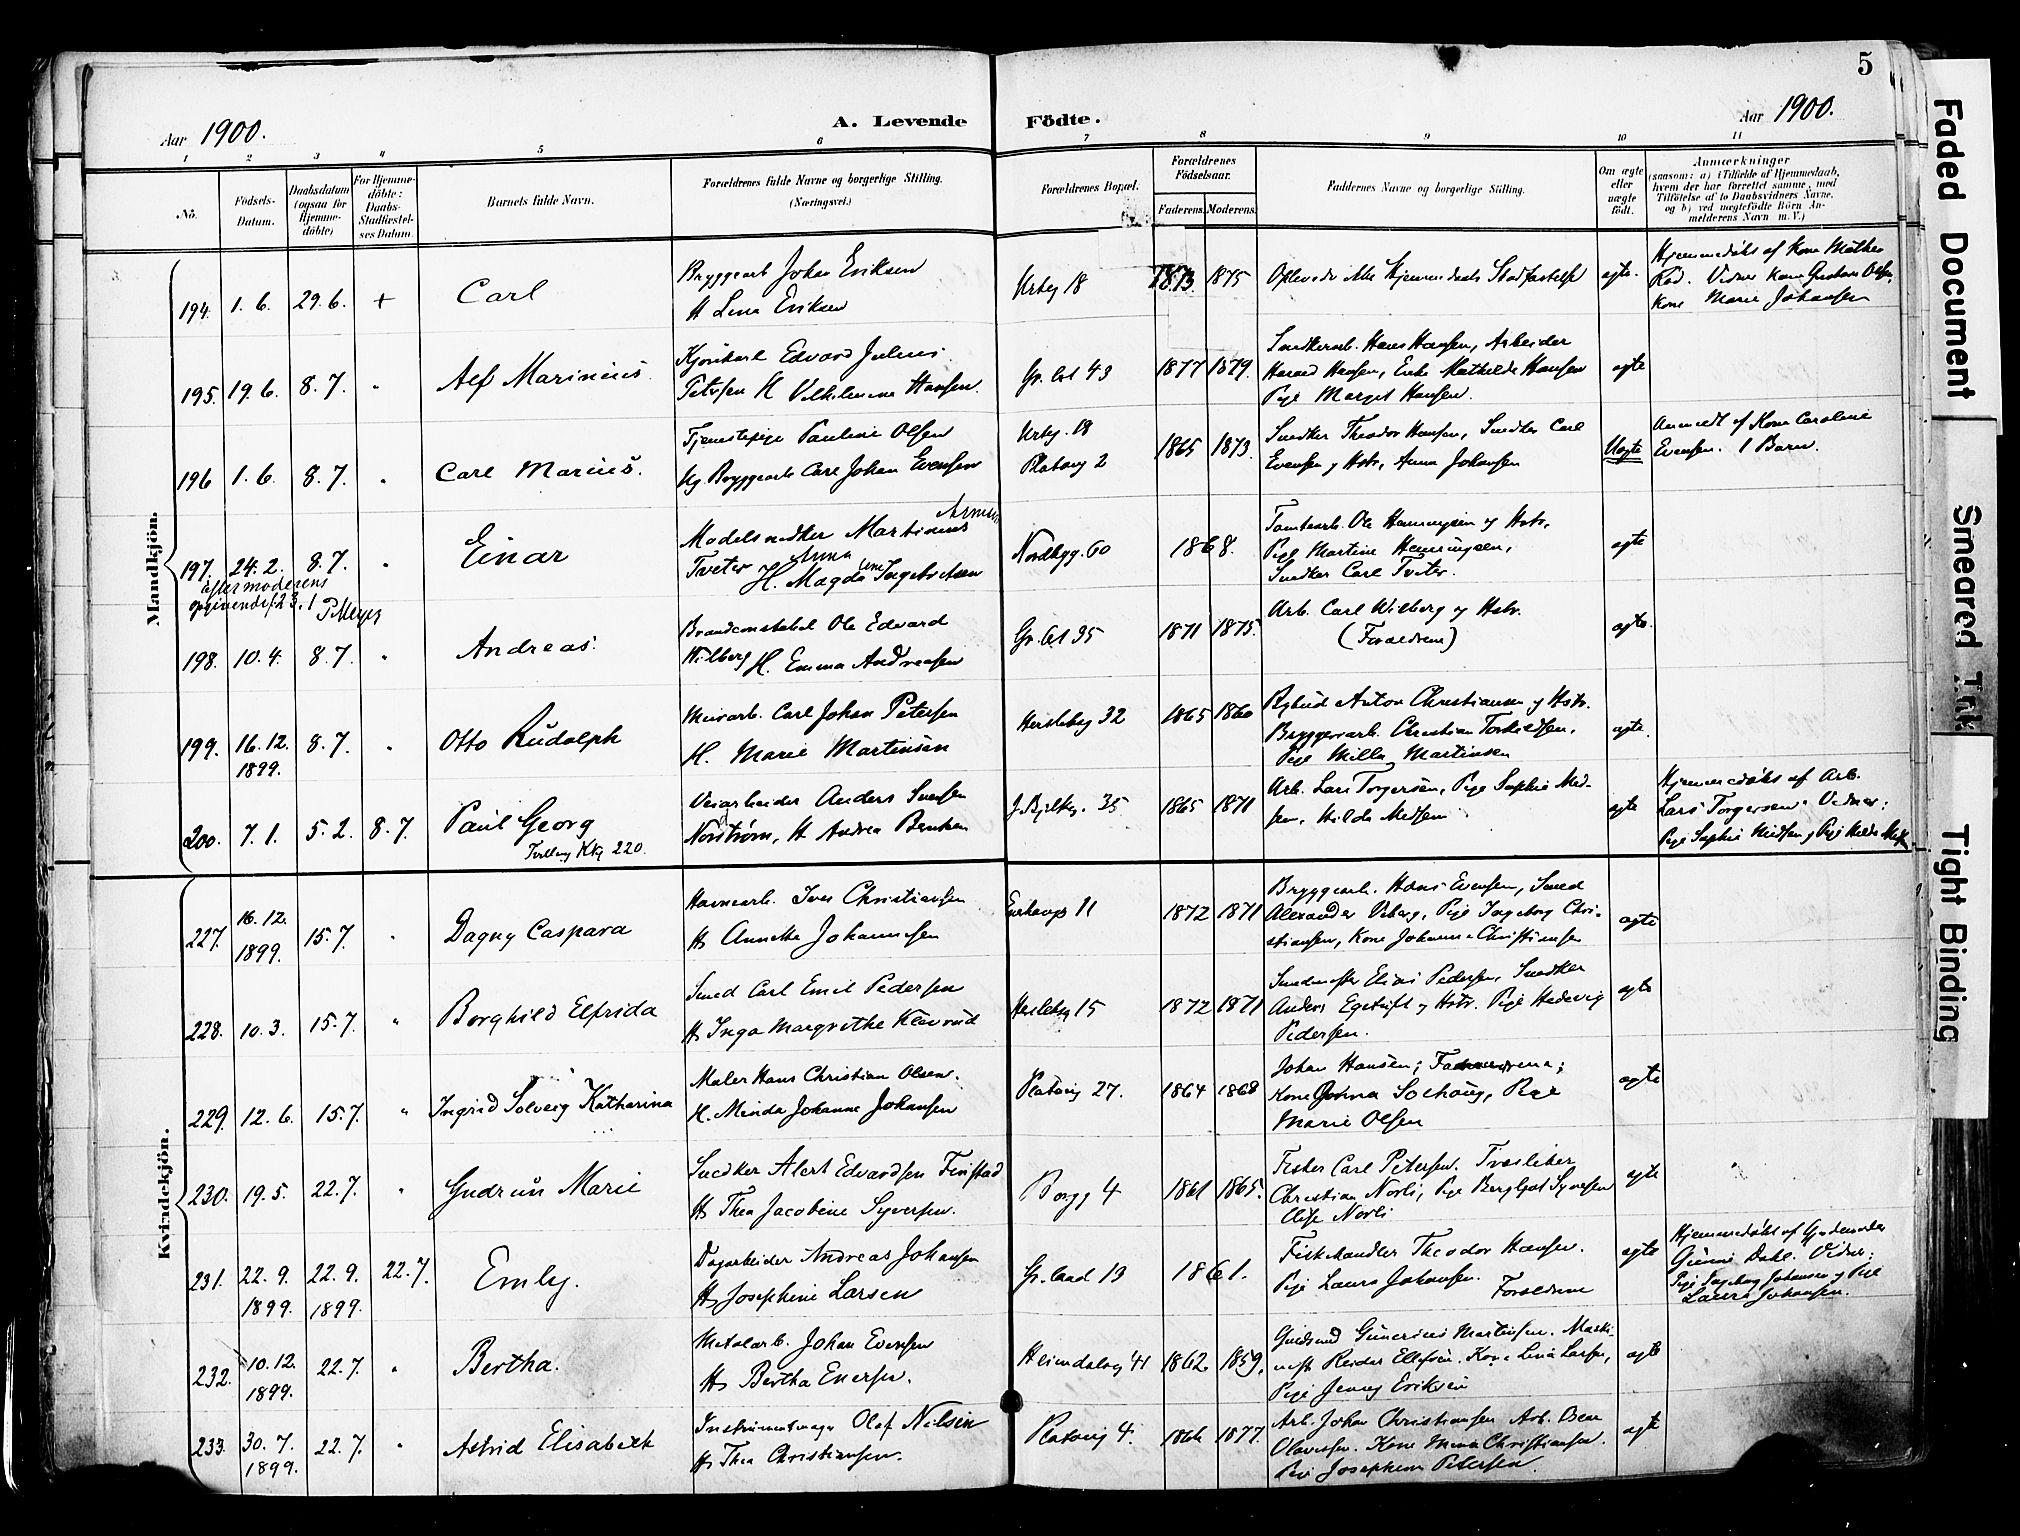 5
Aar 1900.
A. Levende Födte.
Aar 1900.
1 2 3 4 5 6 7 8 9 10 11
No.
Födsels-
Datum.
Daabsdatum
(ogsaa for
Hjemme-
döbte)
For Hjemme-
döbte:
Daabs-
Stadfæstel-
ses Datum.
Barnets fulde Navn.
Forældrenes fulde Navne og borgerlige Stilling.
(Næringsvei.)
Forældrenes Bopæl.
Forældrenes
Födselsaar.
Faderens. Moderens.
Faddernes Navne og borgerlige Stilling.
Om ægte
eller
uægte
födt.
Anmærkninger
(saasom: a) i Tilfælde af Hjemmedaab,
hvem der har forrettet samme, med
Tilföielse af to Daabsvidners Navne,
og b) ved uægtefödte Börn An-
melderens Navn m. V.)
Mandkjön.
194. 1. 6. 29. 6. + Carl
Bryggearb Johan Eriksen
H Lina Eriksen
Urbg 18 1873. 1875
ægte.
Kone Marie Johansen
195. 19. 6. 8. 7. " Alf Marinius
Edvard Julius
Petersen H Vilhelmine Hansen
Gr. 43 1877 1879.
Snedkerarb. Hans Hansen, Arbeider
Harald Hansen, Enke Mathilde Hansen
Pige Margit Hansen.
ægte
196 1. 6. 8. 7. " Carl Marius.
Tjenestepige Pauline Olsen
Ug Bryggearb Carl Johan Evensen
Urbg. 18
Platoug 2
1865 1873.
Snedker Theodor Hansen, Snedker Carl
Evensen og Hstr, Anna Johansen
Uægte
Anmeldt af Kone Caroline
Evensen. 1 Barn.
197. 24. 2. 8. 7. " Einar
Efter moderens
opgivende f 23. 1 P. Meyer
Modelsnedker Martinius
Tveter H. Magda Anna Ingebretsen
Nordbyg. 60 1868.
Tomtearb. Ole Henningsen og Hstr.
Pige Martine Henningsen,
Snedker Carl Tveter.
ægte
198. 10. 4. 8. 7. " Andreas.
Brandconstabel Ole Edvard
Wilberg H. Emma Andreasen
35 1871 1875.
Arb. Carl Wilberg og Hstr.
(Forældrene)
ægte.
199. 16. 12. 8. 7. " Otto Rudolph
1899.
Murarb. Carl Johan Petersen
H. Marie Martinsen
Herslebg 32 1865 1860
Anton Christiansen og Hstr.
Bryggeriarb. Christian Torkildsen,
Pige Milla Martinsen
ægte.
200. 7. 1. 5. 2. 8. 7. Paul Georg
Tvilling Kkj 220.
Veiarbeider Anders Svensen
Norstrøm, H Andrea Berntsen
J. Bjelkeg. 35 1865 1871
Arb. Lars Torgersen, Pige Sophie Mad-
sen, Hilda Madsen
ægte
Hjemmedøbt af Arb.
Lars Torgersen. Vidner:
Kvindekjön.
227. 16. 12. 15. 7. " Dagny Caspara
1899.
Havnearb. Iver Christiansen
H Annette Johannesen
Enerhaugg 11 1872 1871
Bryggearb. Hans Evensen, Smed
Alexander Viberg, Pige Ingeborg Chri-
stiansen, Kone Johanne Christiansen
ægte
228. 10. 3. 15. 7. " Borghild Elfrida
Smed Carl Emil Pedersen
H Inga Margrethe Klavrud
Herslebg 15 1872 1871
Elias Pedersen, Snedker
Anders og Hstr. Pige Hedevig
Pedersen.
ægte
229. 12. 6. 15. 7. " Ingrid Solveig Katharina
Maler Hans Christian Olsen.
H. Minda Johanne Johansen
Platoug 27. 1864 1868
Johan Hansen; Forældrene;
Kone Anna Solhaug, Pige
Marie Olsen
ægte
230. 19. 5. 22. 7. " Gudrun Marie
Snedker Alert Edvardsen Finstad
H Thea Jacobine Syversen.
Borgg 4 1861 1865.
Fisker Carl Petersen.
Christian Norli, Pige Bergljot Syversen
Norli
ægte
231. 22. 9. 22. 9. 22. 7. Emly.
1899. 1899.
Dagarbeider Andreas Johansen
H Josephine Larsen
13 1861.
Fiskehandler Theodor Hansen.
Pige Laura Johansen. Forældrene
ægte
Hjemmedøbt af Gjordemoder
Dahl. Vidner:
Pige Ingeborg Johansen og Pige
Laura Johansen.
232. 10. 12. 22. 7. " Bertha.
1899.
Metalarb. Johan Evensen
H Bertha Enersen.
Heimdalsg 41 1862. 1859.
Gunerius Martinsen. Maski-
nist Reidar Ellefsen. Kone Lina Larsen,
Pige Jenny Eriksen
ægte
233. 30. 7. 22. 7. " Astrid Elisabeth
1899.
Instrumentmager Olaf Nilsen
H Thea Christiansen.
Platoug 4. 1866 1877.
Arb. Johan Christiansen Arb.
Olavesen. Kone Christiansen.
Pige Josephine Petersen.
ægte
Faded Document
Smeared Ink
Tight Binding